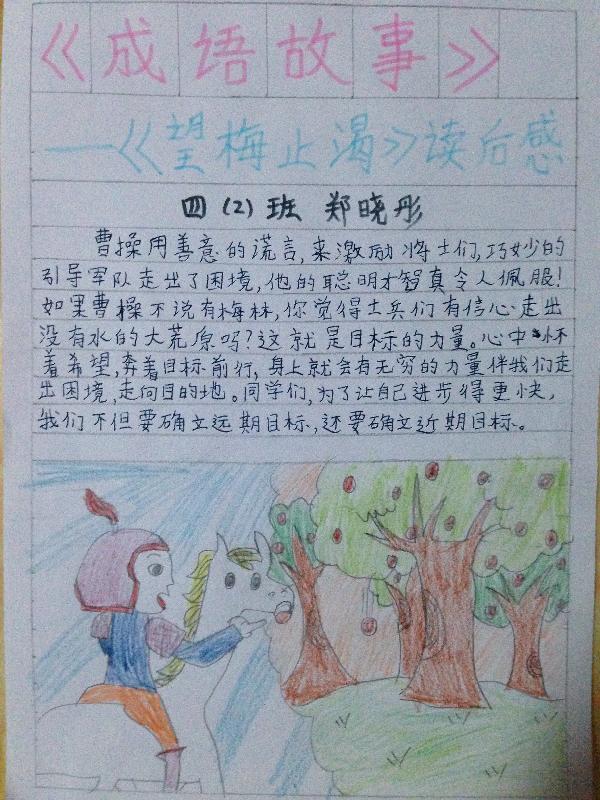 《成语故事》
——《望梅止渴》读后感
四(2)班 郑晓彤
曹操用善意的谎言,来激励将士们,巧妙的
引导军队走出了困境,他的聪明才智真令人佩服!
如果曹操不说有梅林,你觉得士兵们有信心走出
没有水的大荒原吗?这就是目标的力量。心中怀
着希望,奔着目标前行,身上就会有无穷的力量伴我们走
出困境,走向目的地。同学们,为了让自己进步得更快,
我们不但要确立远期目标,还要确立近期目标。